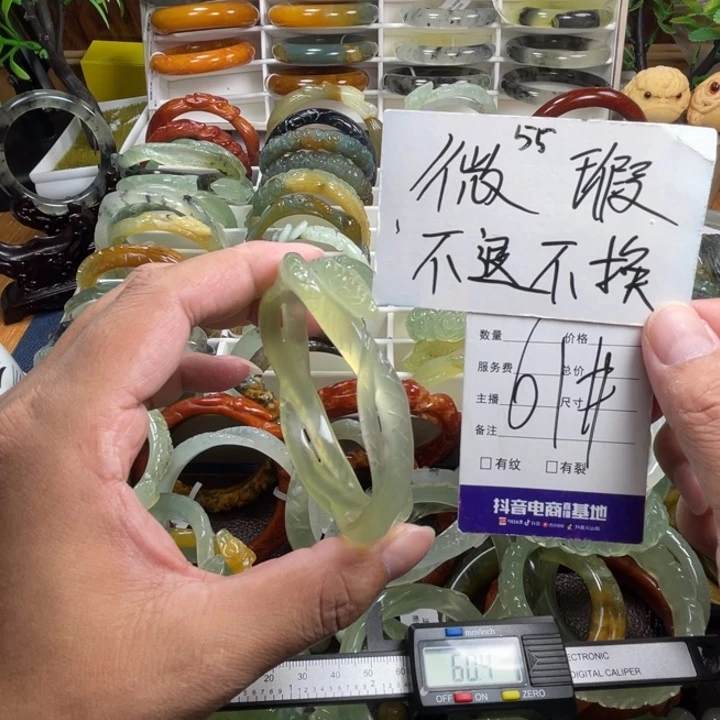 55
微瑕
不退不换
数量 价格
服务费 总价
主播 尺寸
备注
61#
□有纹 □有裂
抖音电商直播基地
mm/inch
60.4
OFF ON ZERO
ECTRONIC
DIGITAL CALIPER
20 30 40